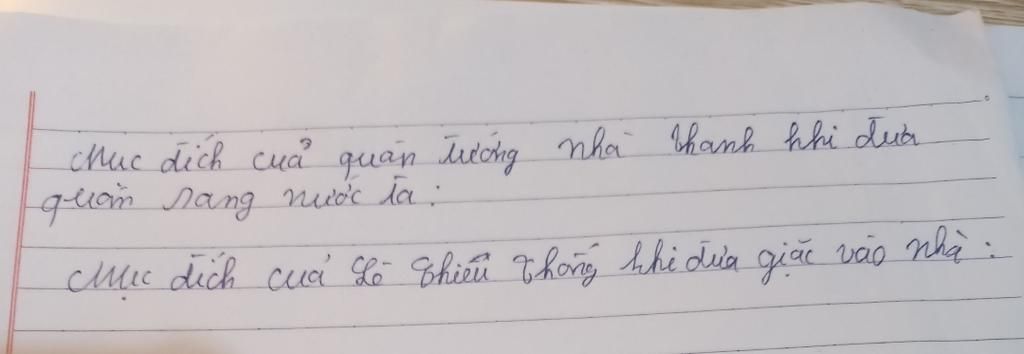 Mục đích của quân tướng nhà Thanh khi đưa
quân sang nước ta :
Mục đích của Lê Chiêu Thống khi đưa giặc vào nhà :